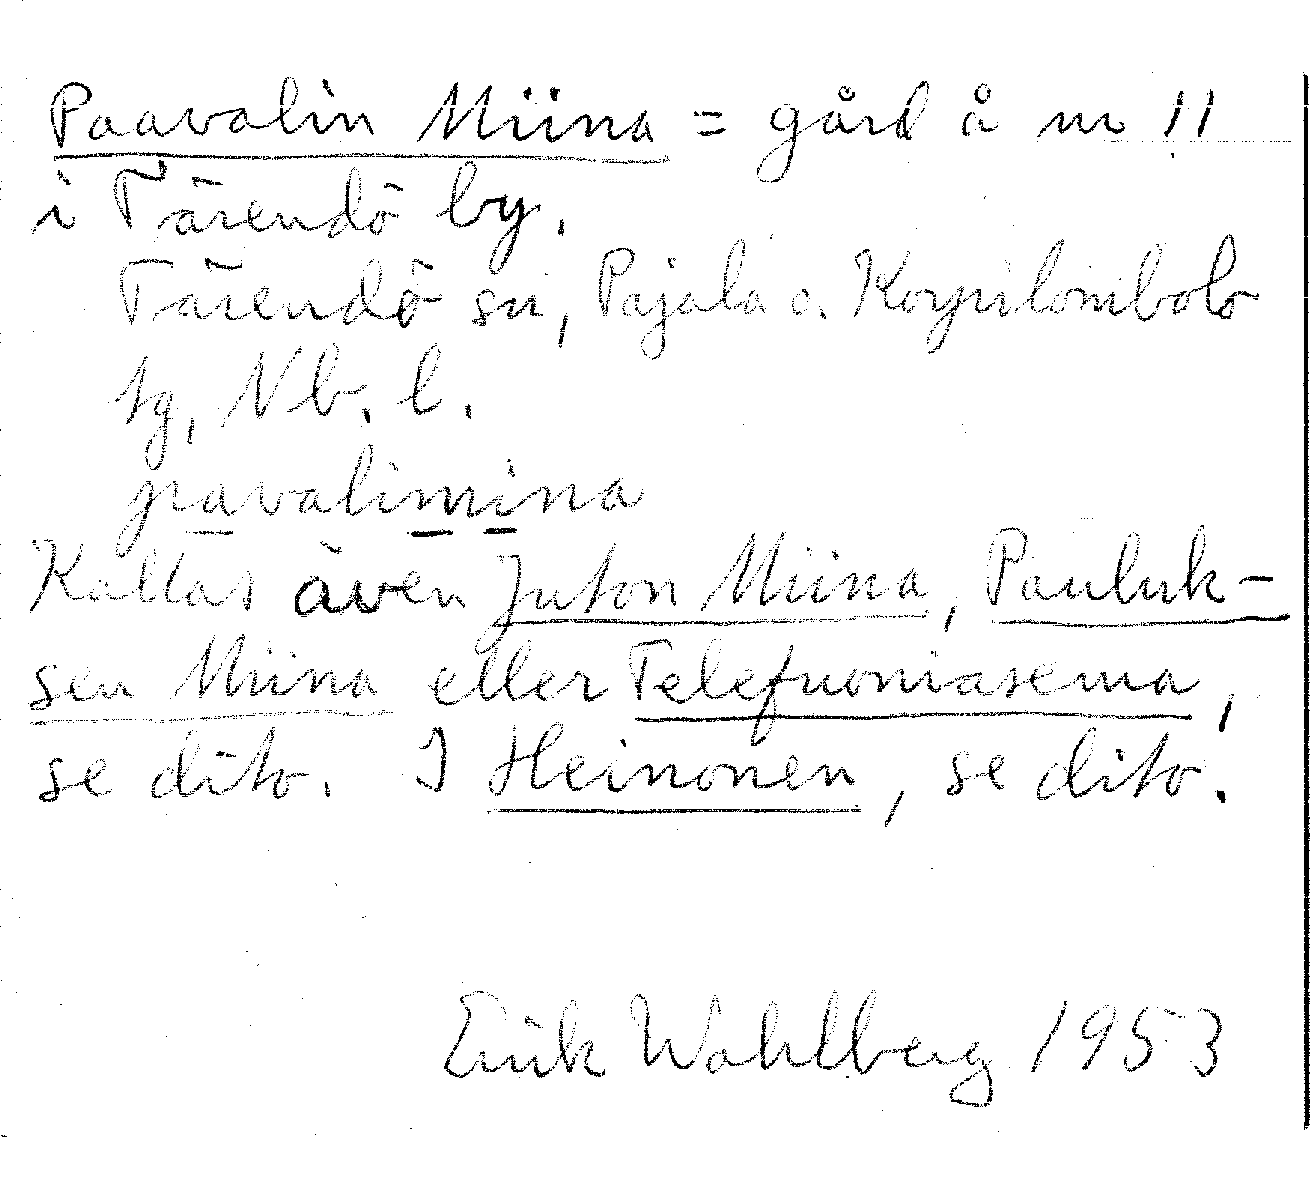 Paavalin Miina = gård å nr 11
i Tärendö by.
Tärendö sn, Pajala o. Korpilombolo
tg, Nb. l.
pavalimina
Kallas även Juton Miina, Pauluk-
sen Miina eller Telefuoniasema,
se dito. I Heinonen, se dito.
Erik Wahlberg 1953